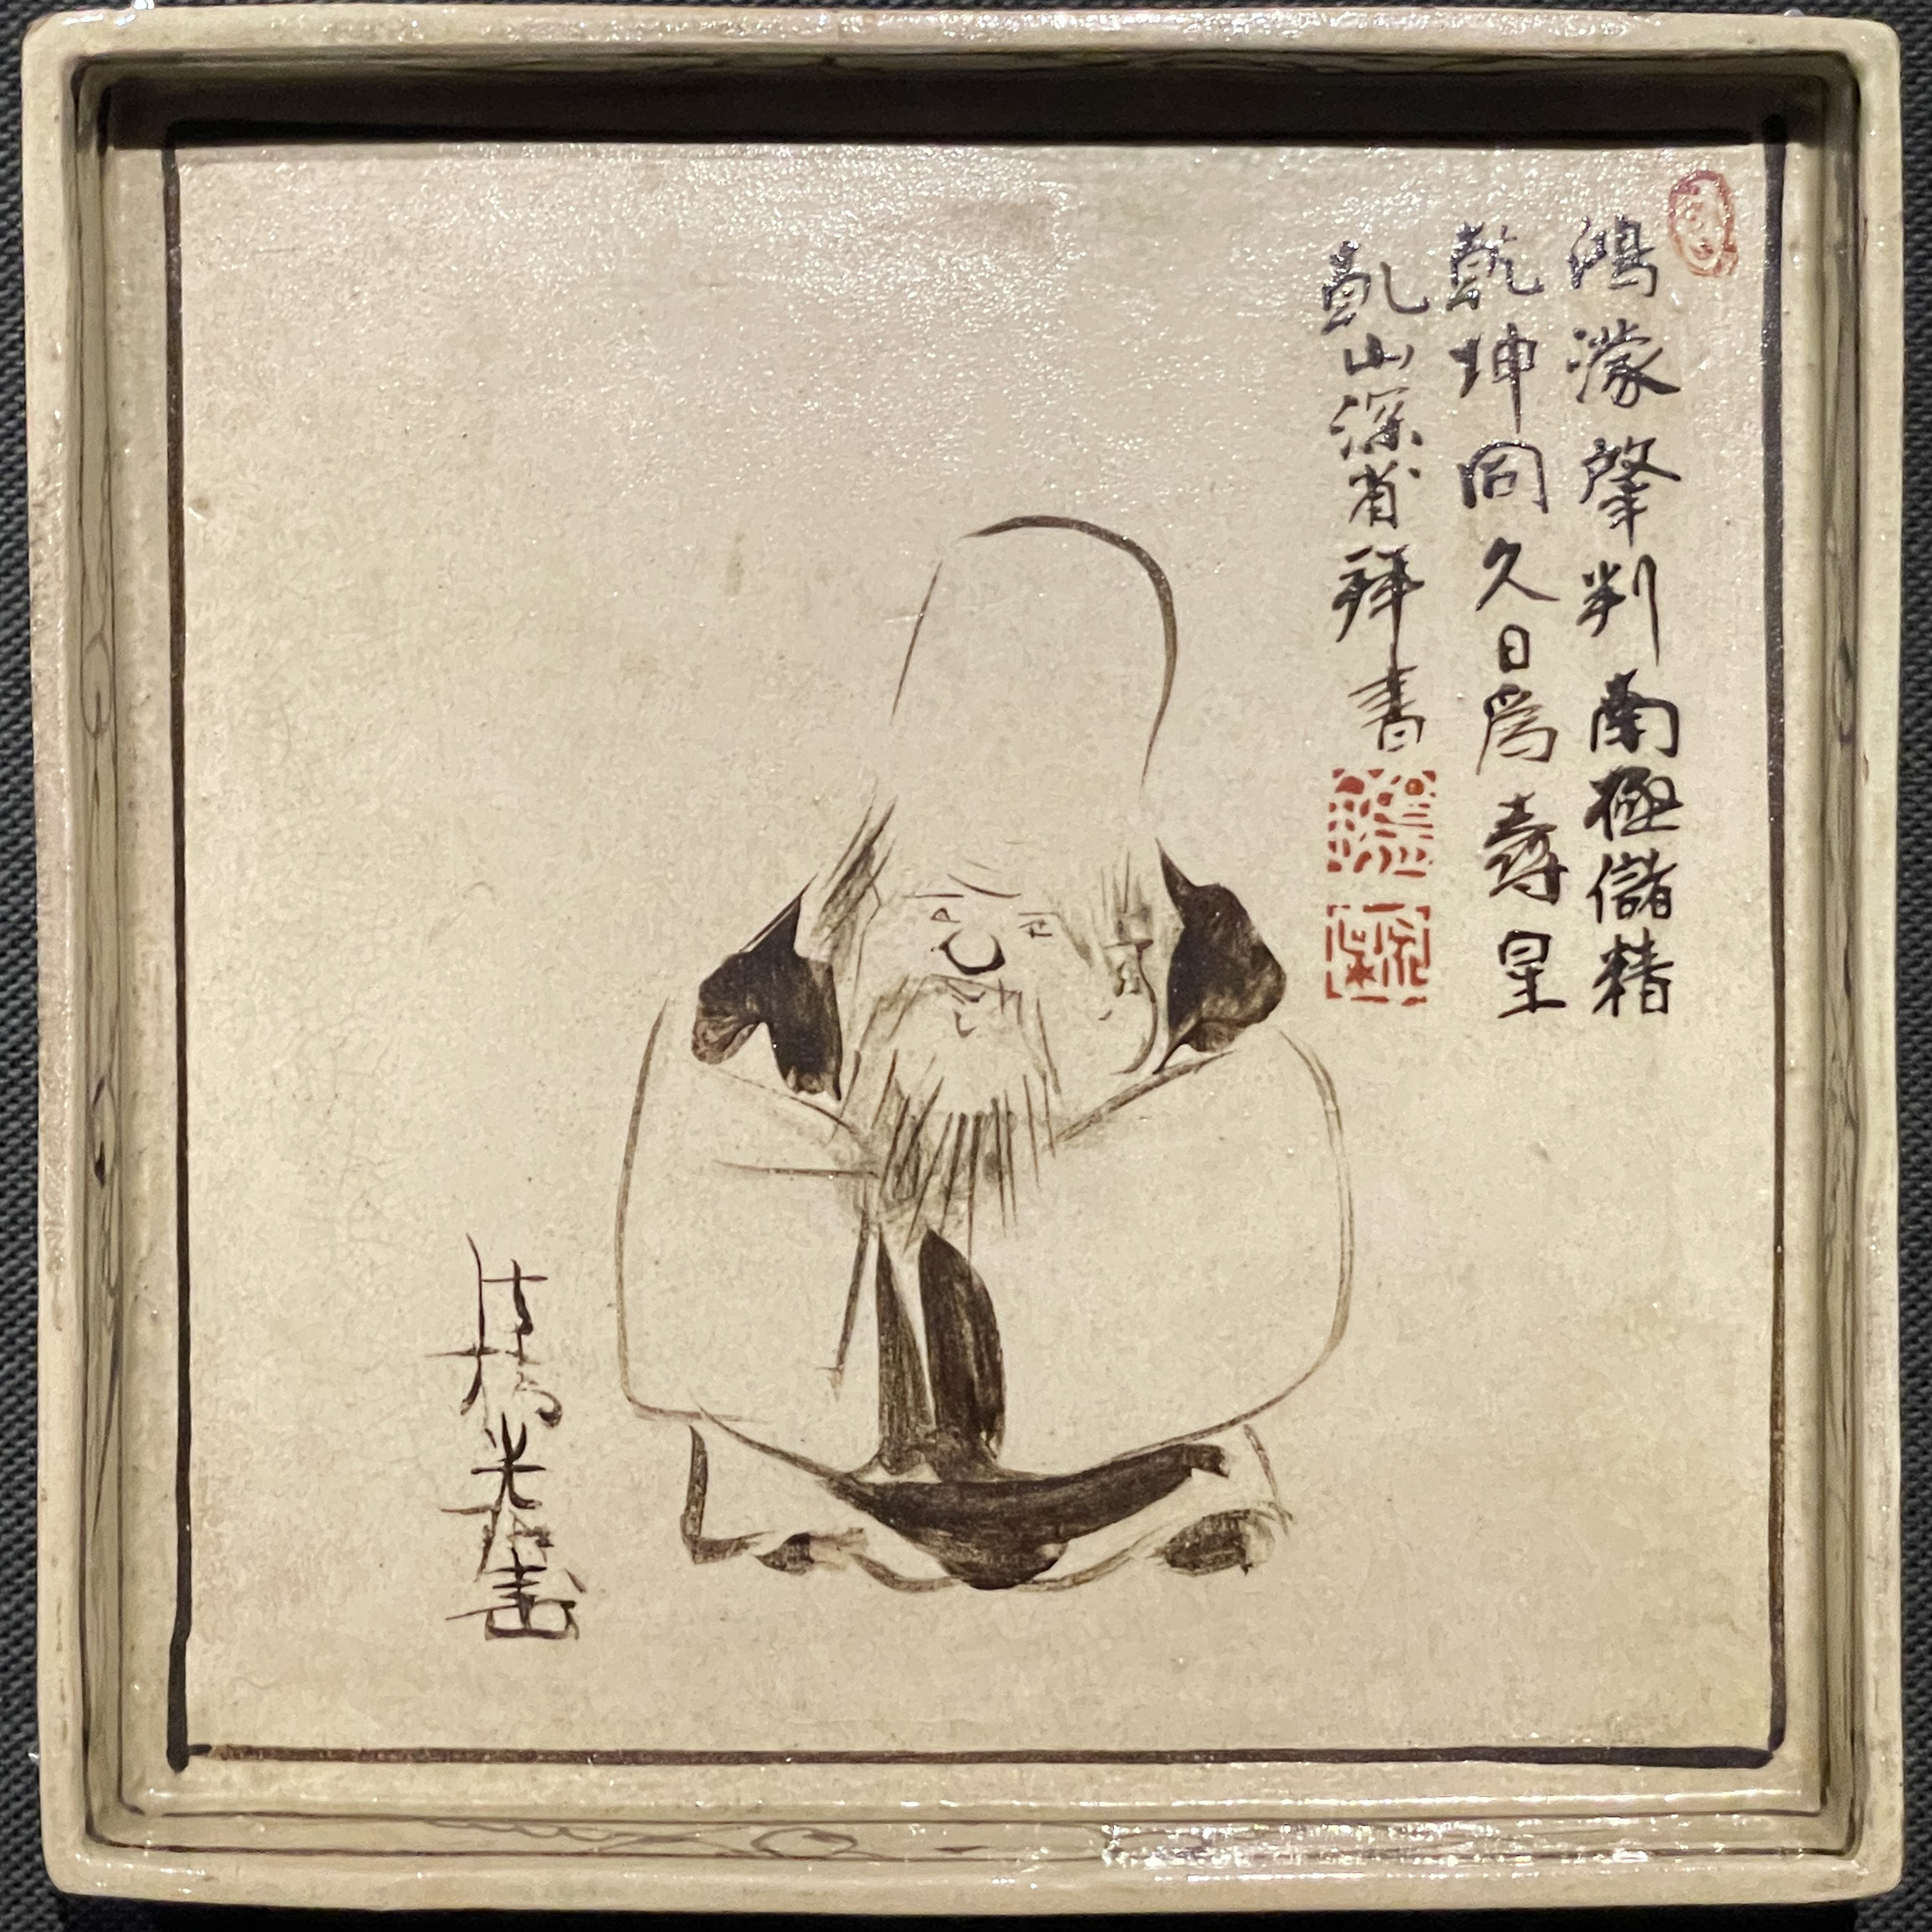 鴻濛肇判南極儲精
乾坤同久曰爲壽星
乾山深省拜書
法橋光琳畫